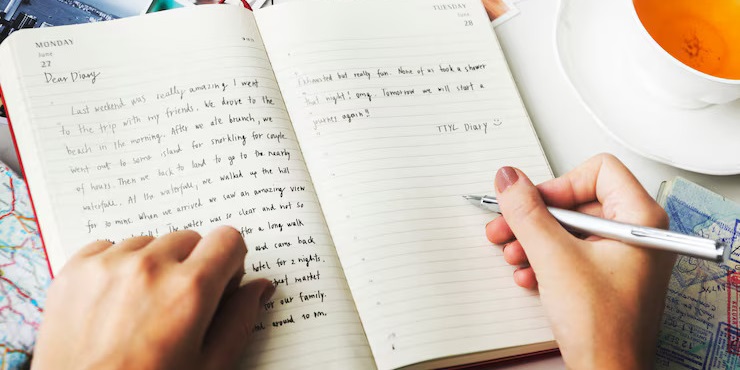 MONDAY
June
27
Dear Diary
Last weekend was really amazing. I went
to the trip with my friends. We drove to the
beach in the morning. After we ate brunch, we
went out to some island for snorkling for couple
of hours. Then we back to land to go to the nearby
waterfall. At the waterfall, we walked up the hill
for 10 mins. When we arrived we saw an amazing view
of the waterfall! The water was so clear and not so
after a long walk
and came back
hotel for 2 nights.
market
for our family.
around 10 pm.
TUESDAY
June
28
Exhausted but really fun. None of us took a shower
that night! omg. Tomorrow we will start a
journey again!!
TTYL Diary